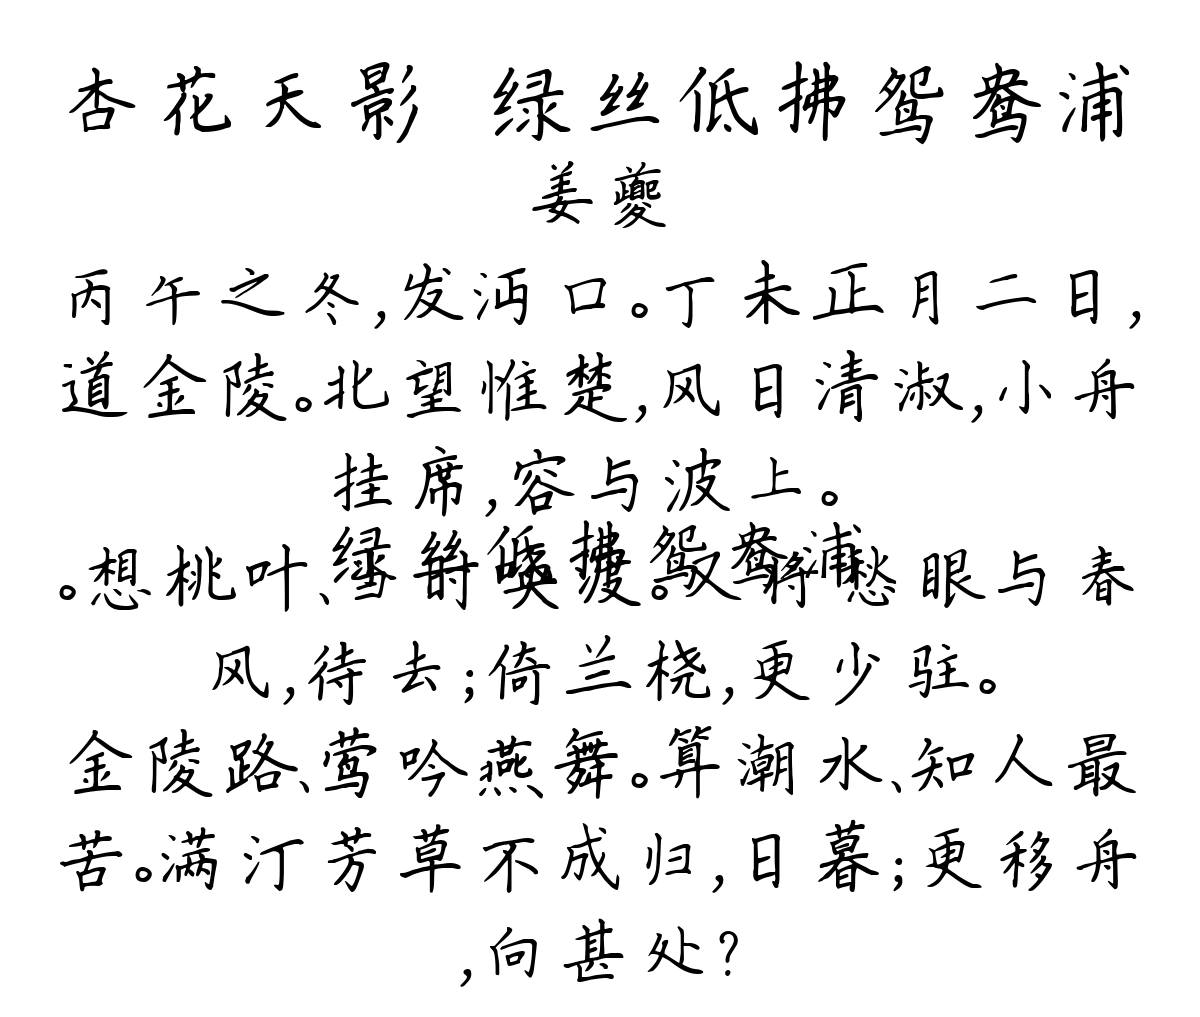 杏花天影 绿丝低拂鸳鸯浦
姜夔
丙午之冬,发沔口。丁未正月二日,
道金陵。北望惟楚,风日清淑,小舟
挂席,容与波上。
绿丝低拂鸳鸯浦
。想桃叶、当时唤渡。又将愁眼与春
风,待去;倚兰桡,更少驻。
金陵路、莺吟燕舞。算潮水、知人最
苦。满汀芳草不成归,日暮;更移舟
,向甚处?